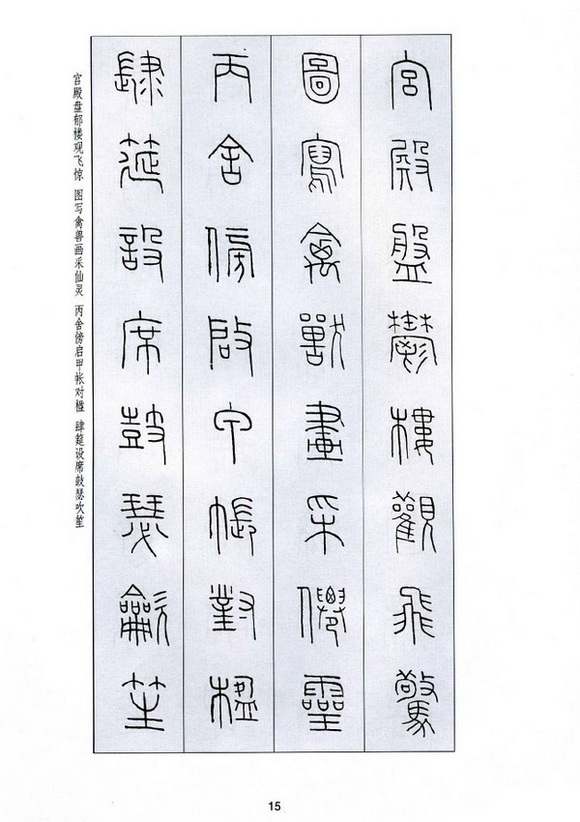 宮殿盤鬱樓觀飛驚
圖寫禽獸畫采僊靈
丙舍傍啟甲帳對楹
肆筵設席鼓瑟龡笙
宫殿盘郁楼观飞惊 图写禽兽画采仙灵 丙舍傍启甲帐对楹 肆筵设席鼓瑟吹笙
15